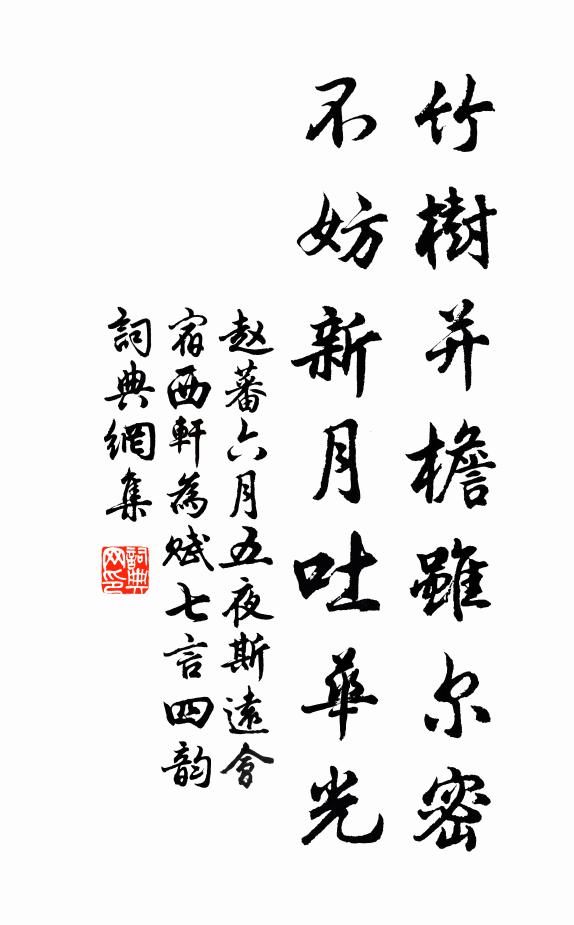 竹樹并檐雖尔密
不妨新月吐華光
赵蕃六月五夜斯遠會
宿西軒為赋七言四韵
詞典網集
詞典网印